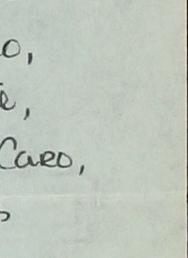 o,
e,
Caro,